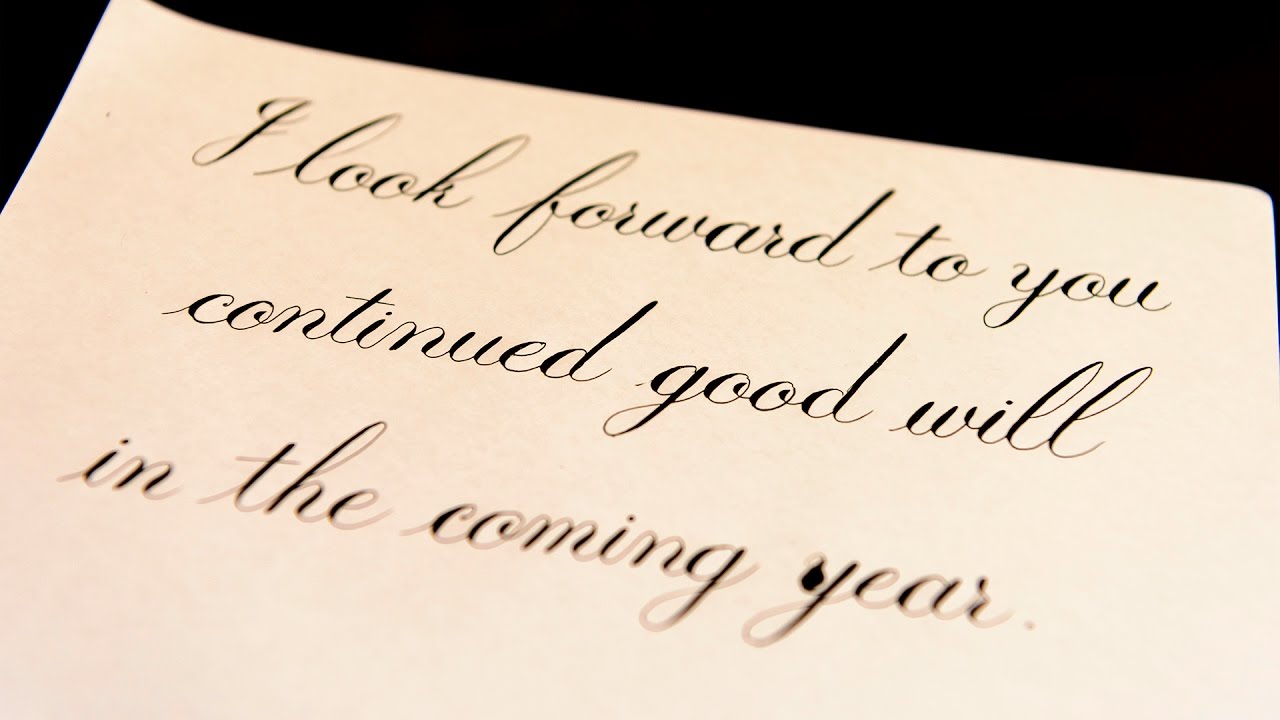 I look forward to you
continued good will
in the coming year.